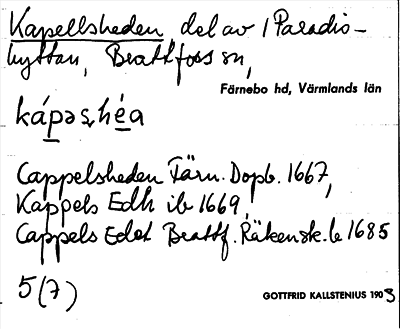 Kapellsheden, del av / Paradis-
hyttan, Brattfors sn,
Färnebo hd, Värmlands län
kápəsₒhéa
Cappelsheden Färn. Dopb. 1667,
Kappels Edh ib 1669,
Cappels Edet Brattf. Räkensk.b 1685
5(7)
GOTTFRID KALLSTENIUS 1903